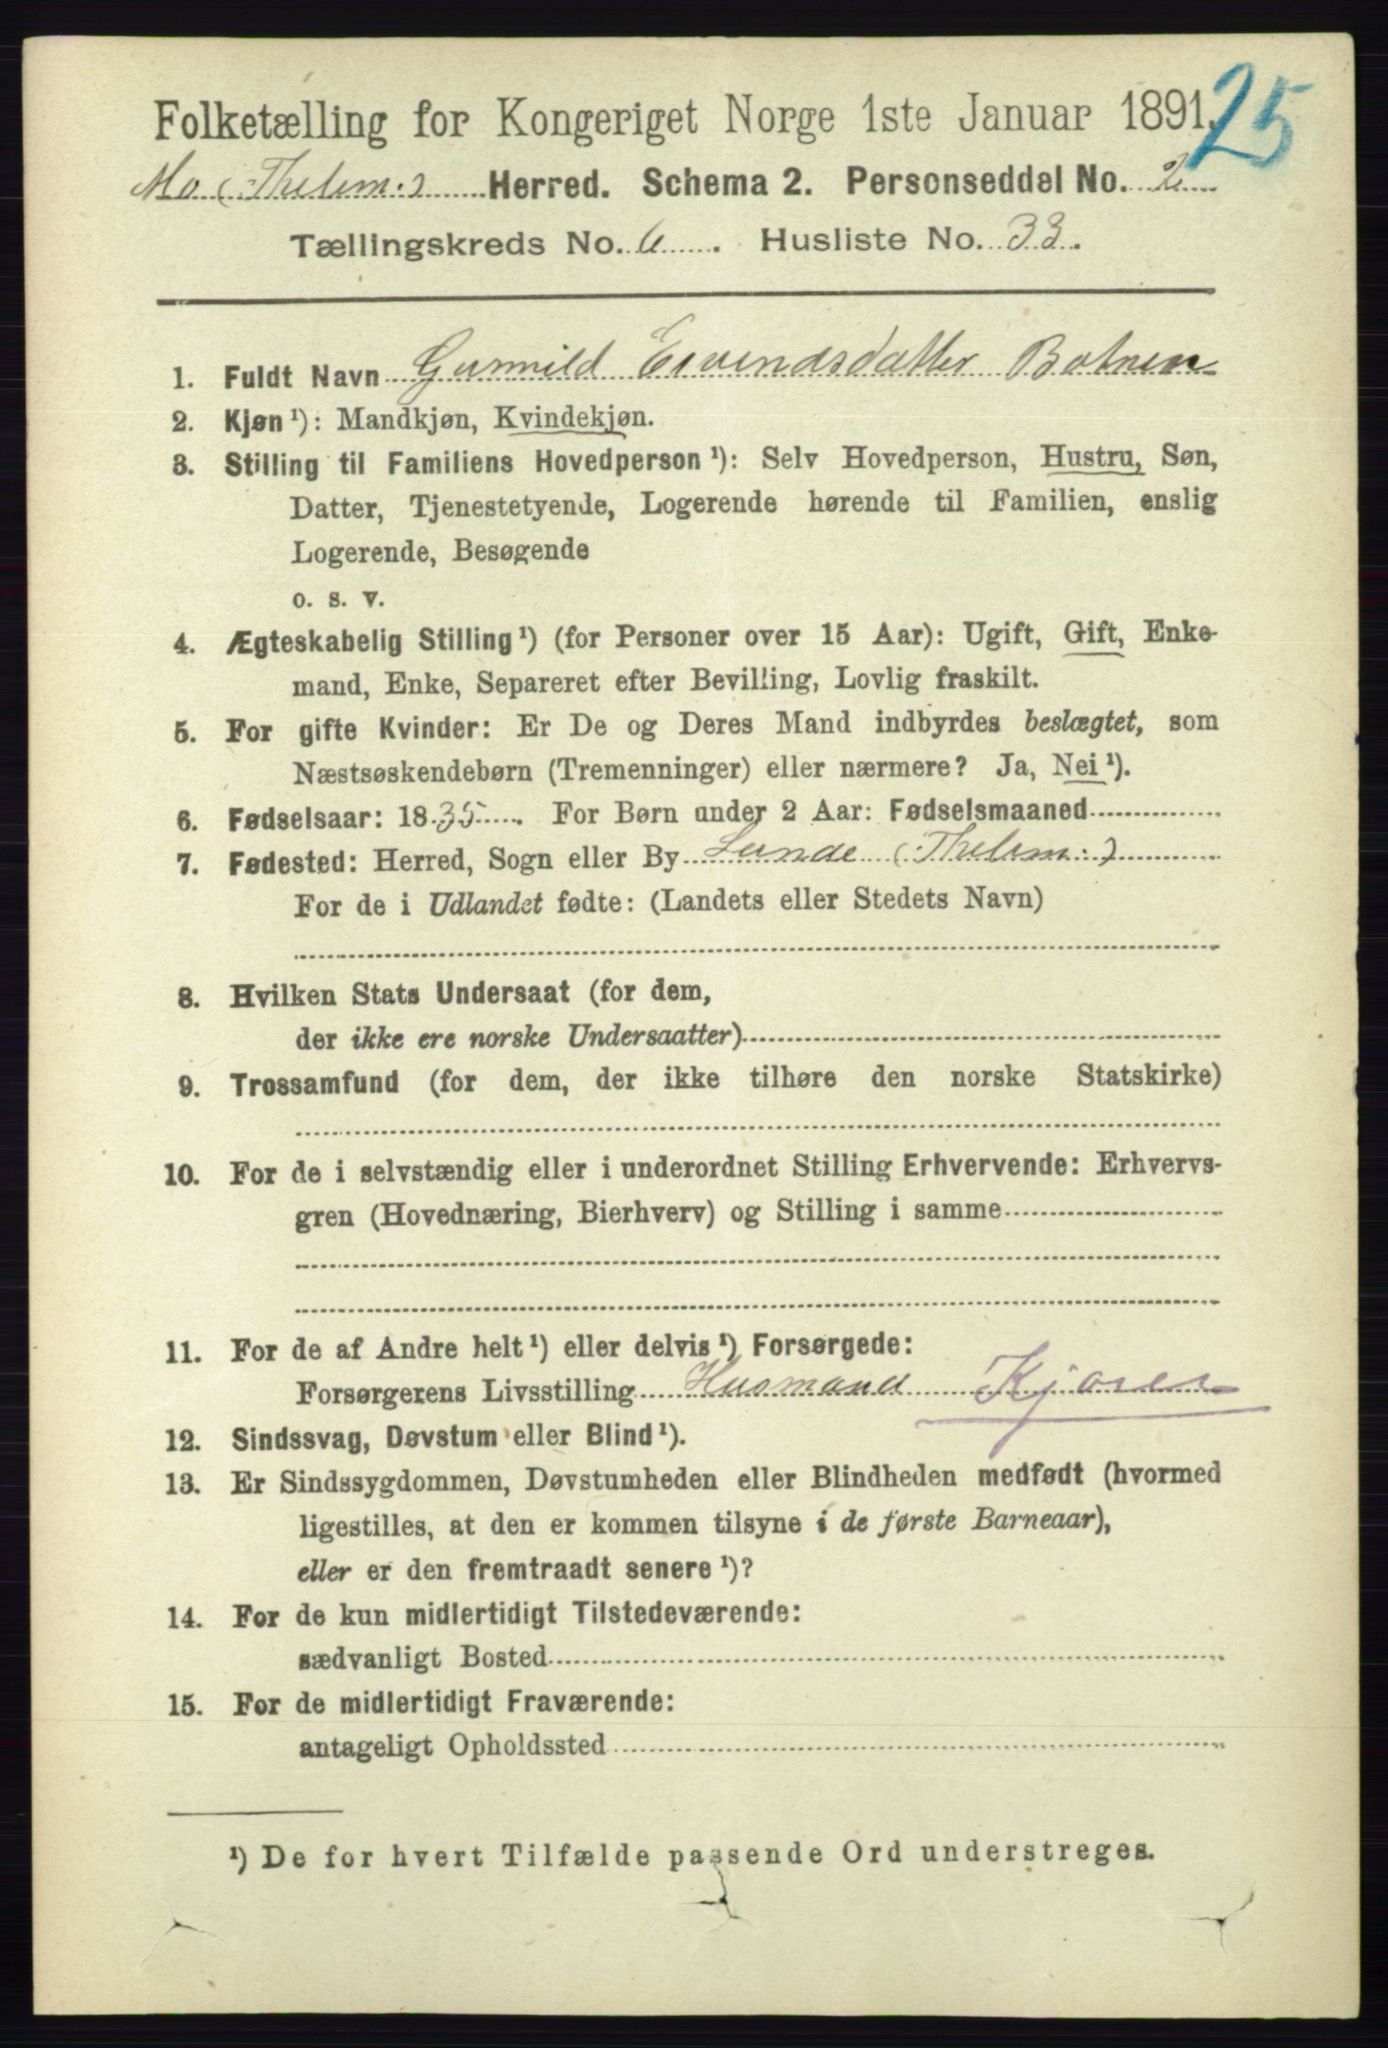 Folketælling for Kongeriget Norge 1ste Januar 1891. 25
Mo (Thelem:) Herred. Schema 2. Personseddel No. 2
Tællingskreds No. 6. Husliste No. 33.
1. Fuldt Navn Gunnild Eivindsdatter Botnen
2. Kjøn ¹): Mandkjøn, Kvindekjøn.
3. Stilling til Familiens Hovedperson ¹): Selv Hovedperson, Hustru, Søn,
Datter, Tjenestetyende, Logerende hørende til Familien, enslig
Logerende, Besøgende
o. s. v.
4. Ægteskabelig Stilling ¹) (for Personer over 15 Aar): Ugift, Gift, Enke-
mand, Enke, Separeret efter Bevilling, Lovlig fraskilt.
5. For gifte Kvinder: Er De og Deres Mand indbyrdes beslægtet, som
Næstsøskendebørn (Tremenninger) eller nærmere? Ja, Nei ¹).
6. Fødselsaar: 1835. For Børn under 2 Aar: Fødselsmaaned
7. Fødested: Herred, Sogn eller By Lunde (Thelem:)
For de i Udlandet fødte: (Landets eller Stedets Navn)
8. Hvilken Stats Undersaat (for dem,
der ikke ere norske Undersaatter)
9. Trossamfund (for dem, der ikke tilhøre den norske Statskirke)
10. For de i selvstændig eller i underordnet Stilling Erhvervende: Erhvervs-
gren (Hovednæring, Bierhverv) og Stilling i samme
11. For de af Andre helt ¹) eller delvis ¹) Forsørgede:
Forsørgerens Livsstilling Husmand Kjører
12. Sindssvag, Døvstum eller Blind ¹).
13. Er Sindssygdommen, Døvstumheden eller Blindheden medfødt (hvormed
ligestilles, at den er kommen tilsyne i de første Barneaar),
eller er den fremtraadt senere ¹)?
14. For de kun midlertidigt Tilstedeværende:
sædvanligt Bosted
15. For de midlertidigt Fraværende:
antageligt Opholdssted
¹) De for hvert Tilfælde passende Ord understreges.